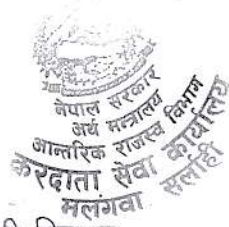 नेपाल सरकार
अर्थ मन्त्रालय
आन्तरिक राजस्व विभाग
करदाता सेवा कार्यालय
मलंगवा सर्लाही